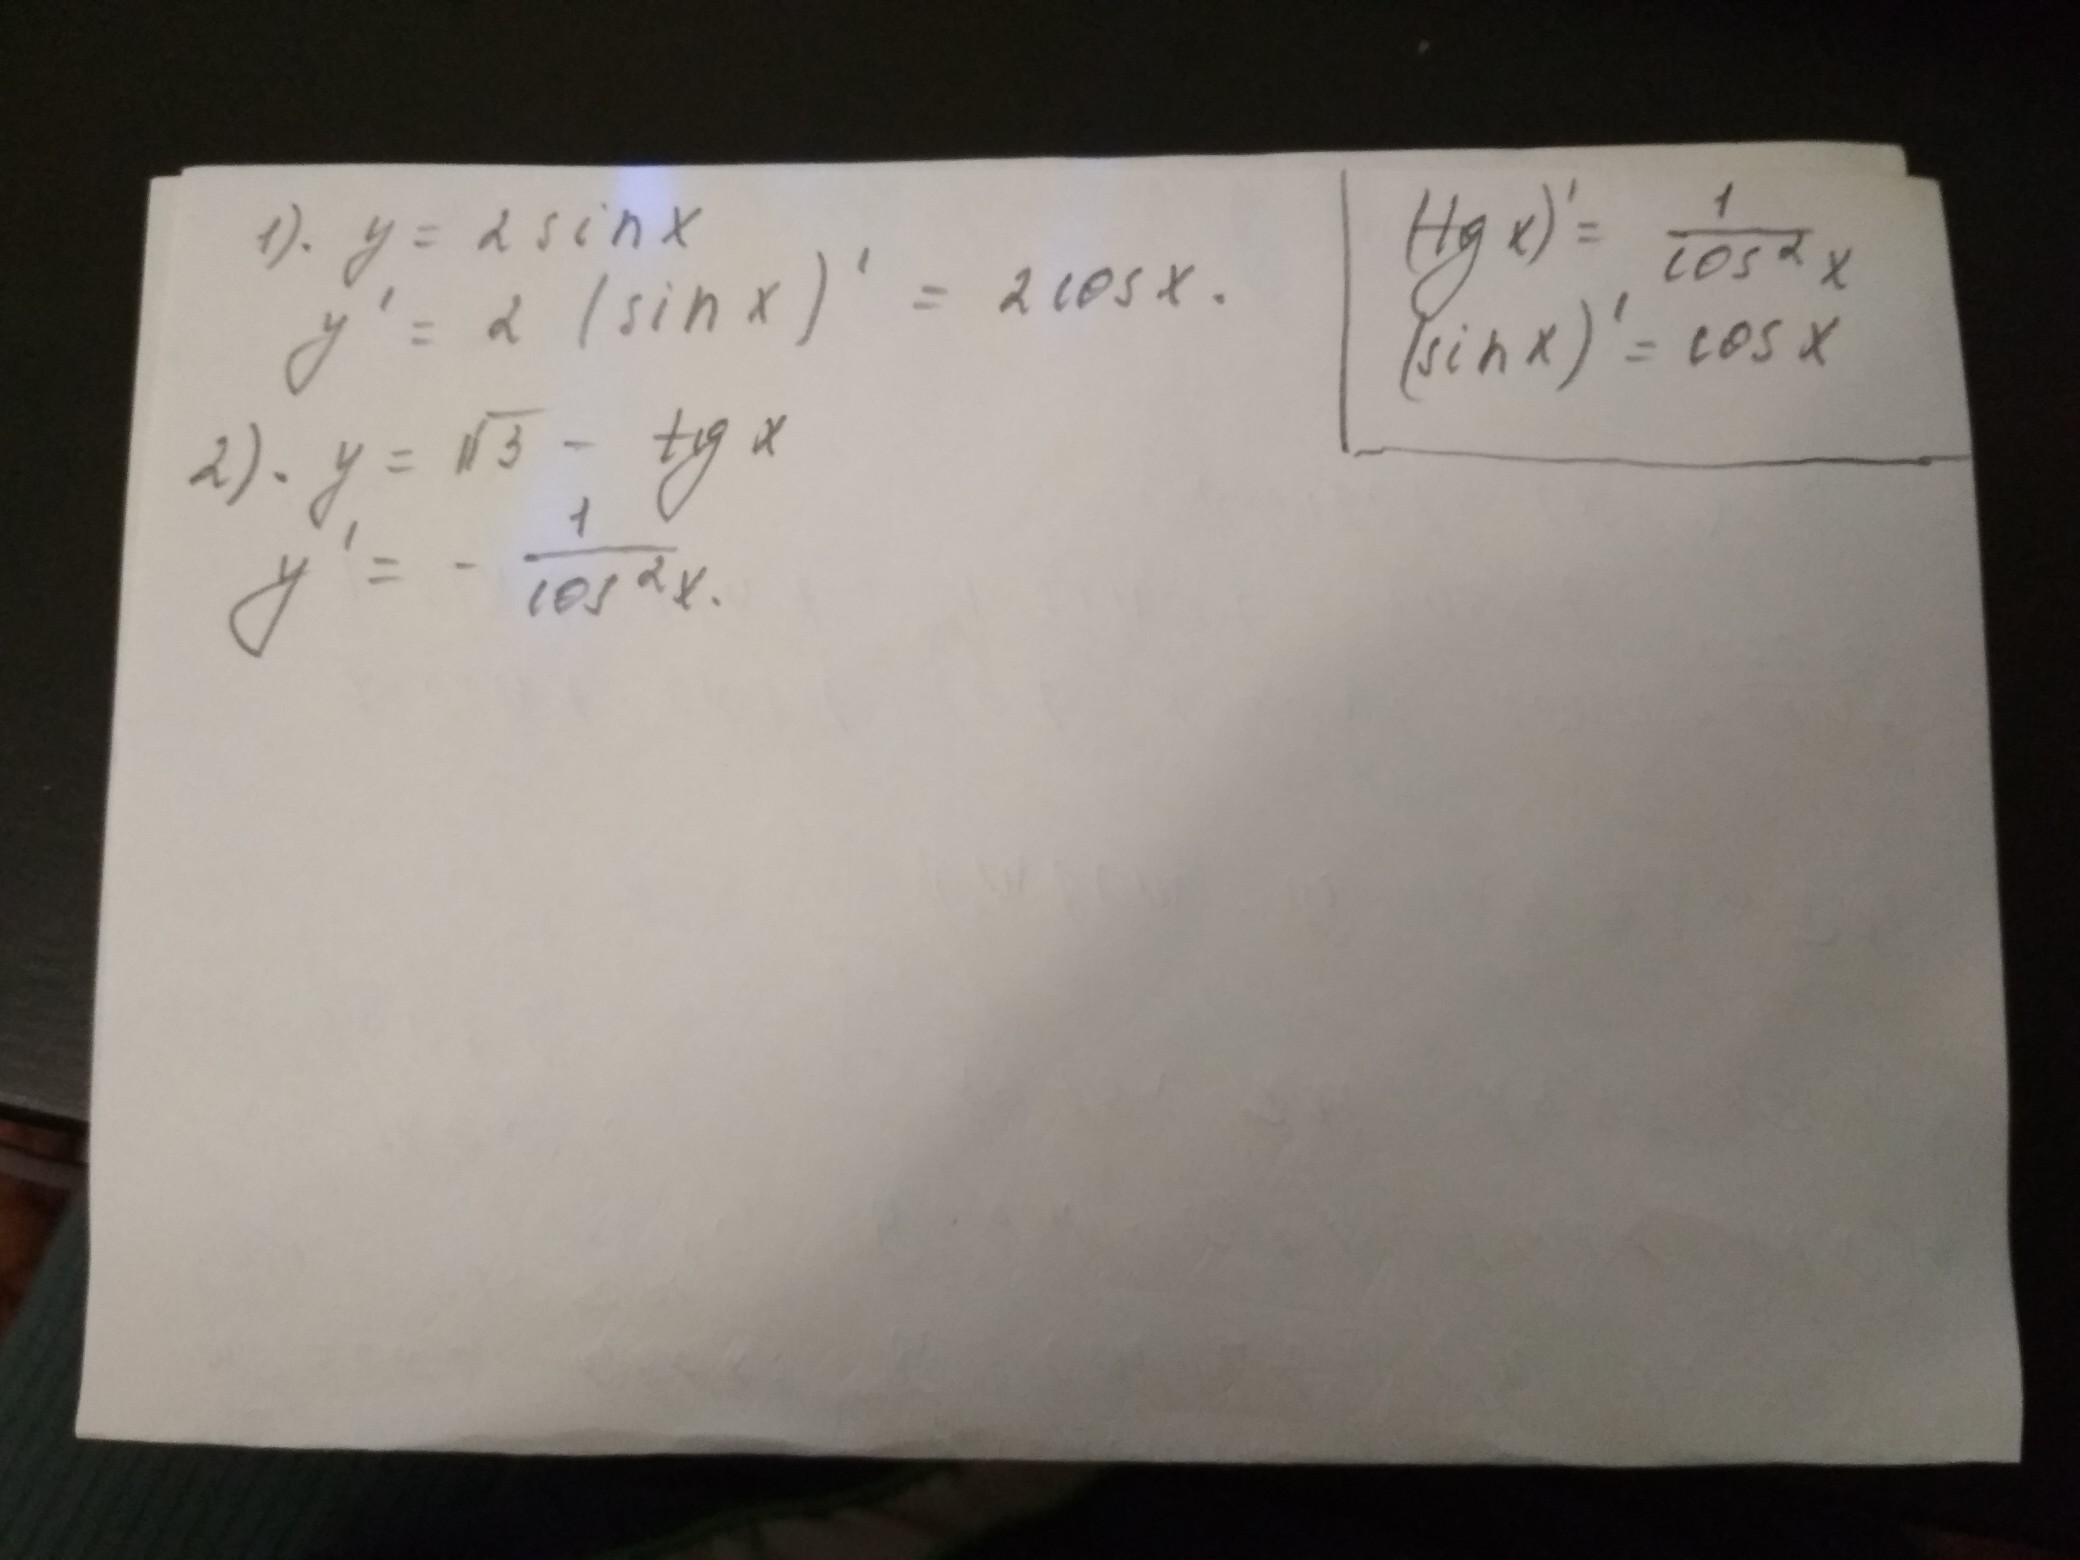 1). y = 2 sin x
y' = 2 (sin x)' = 2 cos x.
2). y = √3 - tg x
y' = - 1/cos²x.
(tg x)' = 1/cos²x
(sin x)' = cos x